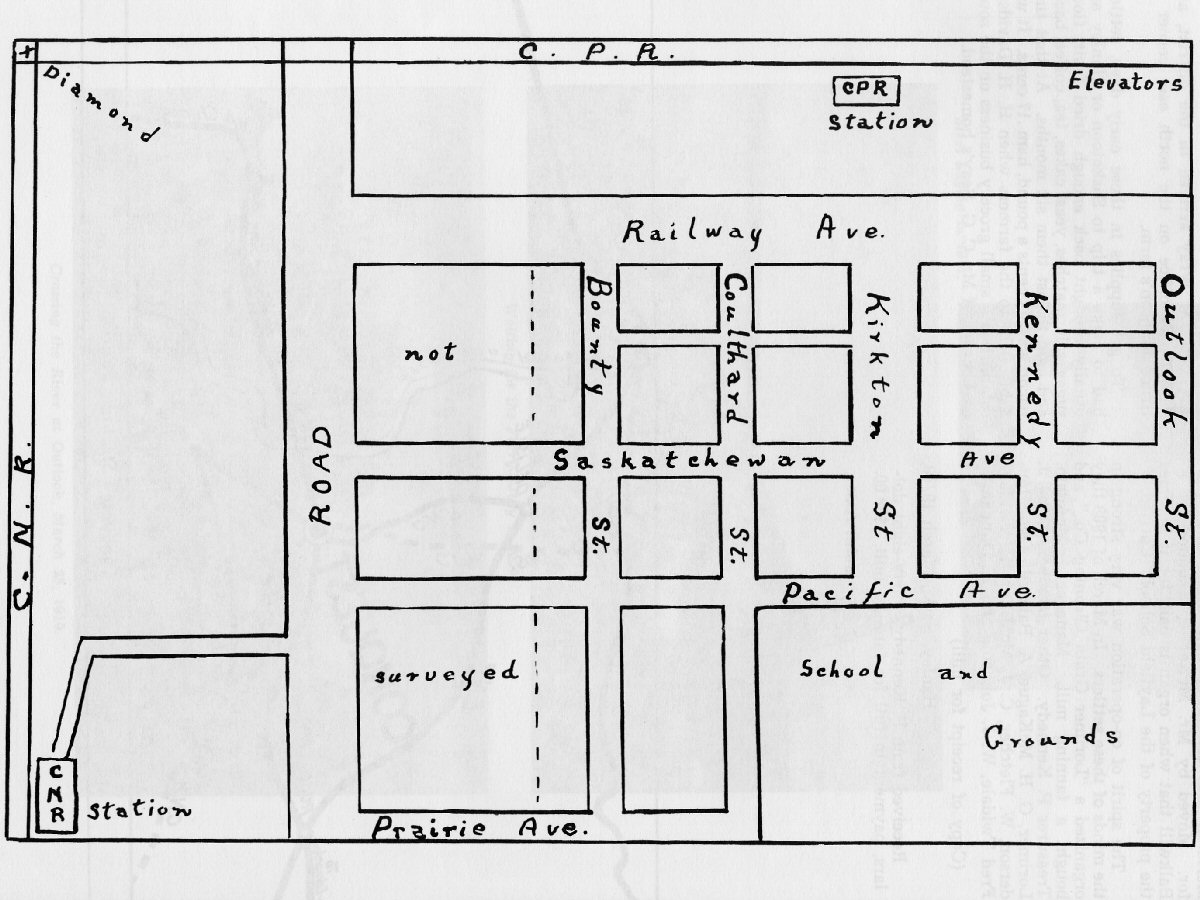 C. P. R.
+
Diamond
CPR
Station
Elevators
Railway Ave.
not
Bounty St.
Coulthard St.
Kirkton St
Kennedy St.
Outlook St.
C. N. R.
ROAD
Saskatchewan Ave
Pacific Ave.
surveyed
School and
Grounds
CNR
Station
Prairie Ave.